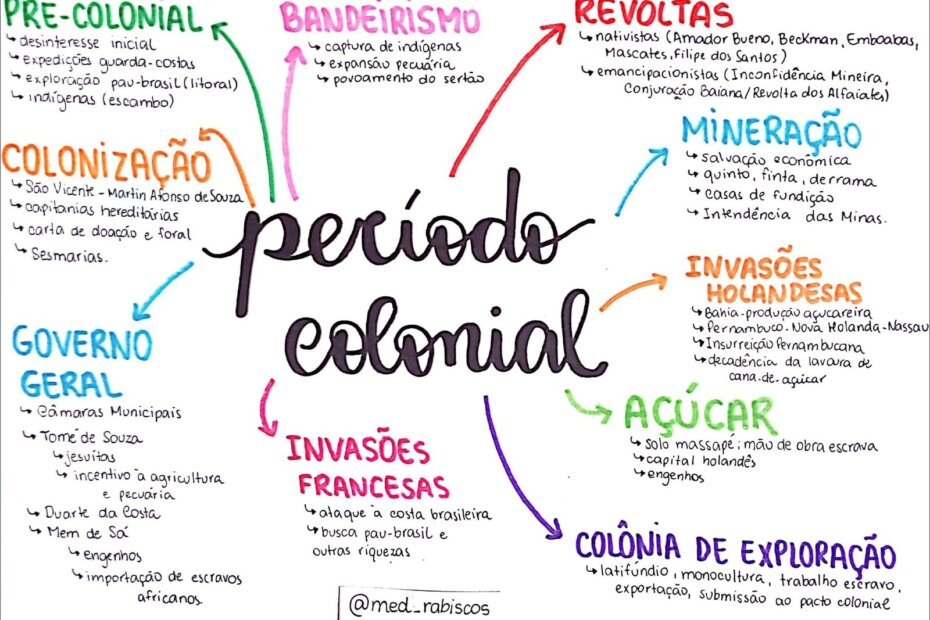 PRÉ-COLONIAL
↳ desinteresse inicial
↳ expedições guarda-costas
↳ exploração pau-brasil (litoral)
↳ indígenas (escambo)
BANDEIRISMO
↳ captura de indígenas
↳ expansão pecuária
↳ povoamento do sertão
REVOLTAS
↳ nativistas (Amador Bueno, Beckman, Emboabas,
Mascates, Filipe dos Santos)
↳ emancipacionistas (Inconfidência Mineira,
Conjuração Baiana/Revolta dos Alfaiates)
COLONIZAÇÃO
↳ São Vicente - Martin Afonso de Souza
↳ capitanias hereditárias
↳ carta de doação e foral
↳ Sesmarias.
MINERAÇÃO
↳ salvação econômica
↳ quinto, finta, derrama
↳ casas de fundição
↳ Intendência das Minas.
período
colonial
INVASÕES
HOLANDESAS
↳ Bahia - produção açucareira
↳ Pernambuco - Nova Holanda - Nassau
↳ Insurreição Pernambucana
↳ decadência da lavoura de
cana-de-açúcar
GOVERNO
GERAL
↳ Câmaras Municipais
↳ Tomé de Souza
↳ jesuítas
↳ incentivo à agricultura
e pecuária
↳ Duarte da Costa
↳ Mem de Sá
↳ engenhos
↳ importação de escravos
africanos.
INVASÕES
FRANCESAS
↳ ataque à costa brasileira
↳ busca pau-brasil e
outras riquezas
AÇÚCAR
↳ solo massapé; mão de obra escrava
↳ capital holandês
↳ engenhos
COLÔNIA DE EXPLORAÇÃO
↳ latifúndio, monocultura, trabalho escravo,
exportação, submissão ao pacto colonial
@med_rabiscos